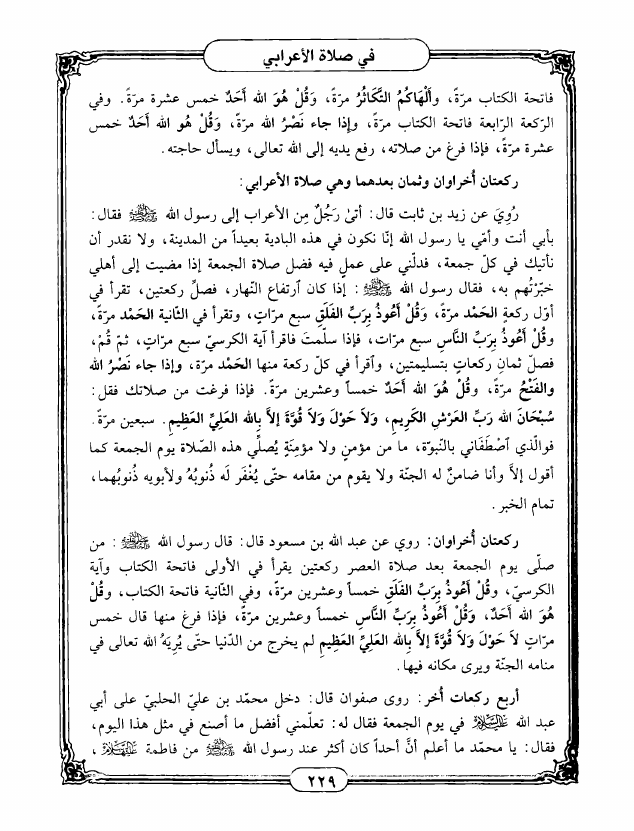 في صلاة الأعرابي
فاتحة الكتاب مرّةً، وأَلْهَاكُمُ التَّكَاثُرُ مرّةً، وَقُلْ هُوَ الله أَحَدٌ خمس عشرة مرّةً. وفي
الرّكعة الرّابعة فاتحة الكتاب مرّةً، وإِذا جاء نَصْرُ الله مرّةً، وَقُلْ هُو الله أَحَدٌ خمس
عشرة مرّةً، فإذا فرغ من صلاته، رفع يديه إلى الله تعالى، ويسأل حاجته.
ركعتان أُخراوان وثمان بعدهما وهي صلاة الأعرابي:
رُوِيَ عن زيد بن ثابت قال: أتىٰ رَجُلٌ مِن الأعراب إلى رسول الله ﷺ فقال:
بأبي أنت وأمّي يا رسول الله إنّا نكون في هذه البادية بعيداً من المدينة، ولا نقدر أن
نأتيك في كلّ جمعة، فدلّني على عملٍ فيه فضل صلاة الجمعة إذا مضيت إلى أهلي
خبّرْتُهم به، فقال رسول الله ﷺ: إذا كان ٱرتفاع النّهار، فصلِّ ركعتين، تقرأ في
أوّل ركعةٍ الحَمْد مرّةً، وَقُلْ أَعُوذُ بِرَبِّ الفَلَقِ سبع مرّات، وتقرأ في الثّانية الحَمْد مرّةً،
وقُلْ أَعُوذُ بِرَبِّ النَّاسِ سبع مرّات، فإذا سلّمتَ فاقرأ آية الكرسيّ سبع مرّاتٍ، ثمّ قُمْ،
فصلّ ثمانِ ركعاتٍ بتسليمتين، وٱقرأ في كلّ ركعة منها الحَمْد مرّة، وإذا جاء نَصْرُ الله
والفَتْحُ مرّةً، وقُلْ هُوَ الله أَحَدٌ خمساً وعشرين مرّةً. فإذا فرغت من صلاتك فقل:
سُبْحَانَ الله رَبِّ العَرْشِ الكَرِيمِ، وَلاَ حَوْلَ وَلاَ قُوَّةَ إلاَّ بِالله العَلِيِّ العَظِيمِ. سبعين مرّةً.
فوالّذي ٱصْطَفَاني بالنّبوّة، ما من مؤمنٍ ولا مؤمِنَةٍ يُصلِّي هذه الصّلاة يوم الجمعة كما
أقول إلاَّ وأنا ضامنٌ له الجنّة ولا يقوم من مقامه حتّى يُغْفَر لَه ذُنوبُهُ ولأبويه ذُنوبُهما،
تمام الخبر.
ركعتان أُخراوان: روي عن عبد الله بن مسعود قال: قال رسول الله ﷺ: من
صلّى يوم الجمعة بعد صلاة العصر ركعتين يقرأ في الأولى فاتحة الكتاب وآية
الكرسيّ، وقُلْ أَعُوذُ بِرَبِّ الفَلَقِ خمساً وعشرين مرّةً، وفي الثّانية فاتحة الكتاب، وقُلْ
هُوَ الله أَحَدٌ، وَقُلْ أَعُوذُ بِرَبِّ النَّاسِ خمساً وعشرين مرّةً، فإذا فرغ منها قال خمس
مرّاتٍ لاَ حَوْلَ وَلاَ قُوَّةَ إلاَّ بِالله العَلِيِّ العَظِيمِ لم يخرج من الدّنيا حتّى يُرِيَهُ الله تعالى في
منامه الجنّة ويرى مكانه فيها.
أربع ركعات أُخر: روى صفوان قال: دخل محمّد بن عليّ الحلبيّ على أبي
عبد الله عَلَيْهِ السَّلَام في يوم الجمعة فقال له: تعلّمني أفضل ما أصنع في مثل هذا اليوم،
فقال: يا محمّد ما أعلم أنَّ أحداً كان أكثر عند رسول الله ﷺ من فاطمة عَلَيْهَا السَّلَام،
٢٢٩